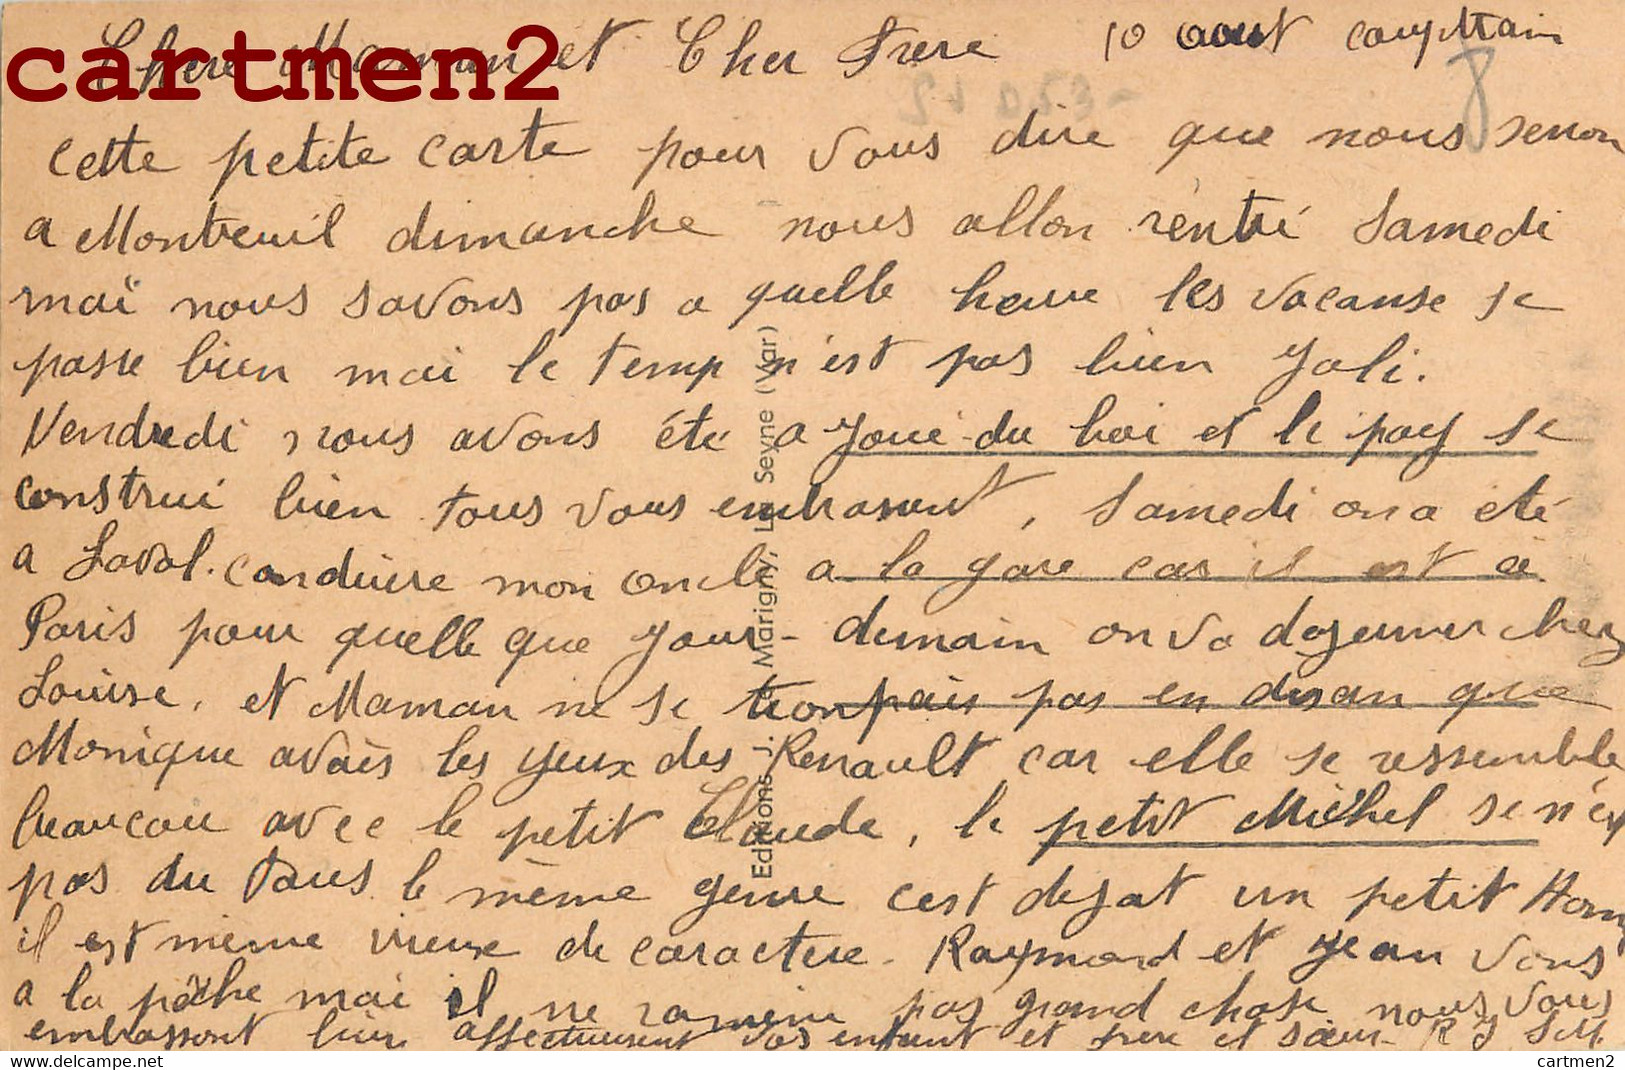 cartmen2
Chere Maman et Cher Frere 10 aout
cette petite carte pour vous dire que nous seron
a Montreuil dimanche nous allon rentré Samedi
mai nous savons pas a quelle heure les vacanse se
passe bien mai le temp n'est pas bien Joli.
Vendredi nous avons été a Joué-du bois et le pay se
construi bien tous vous embrasent, Samedi on a été
a Laval. conduire mon oncle a la gare cas il est à
Paris pour quelle que Jour - demain on va dejeuner chez
Louise, et Maman ne se trompais pas en disan que
Monique avais les yeux des Renault car elle se ressemble
beaucou avec le petit Claude, le petit Michel se n'es
pas du tous le même genre cest dejat un petit Hom
il est même vieux de caractere. Raymond et Jean vons
a la pêche mai il ne ramène pas grand chose nous vous
embrassont bien affectueusement vos enfant et frere et sœur. R J S.M.
Editions -:- Marigny, La Seyne (Var)
8
delcampe.net
cartmen2